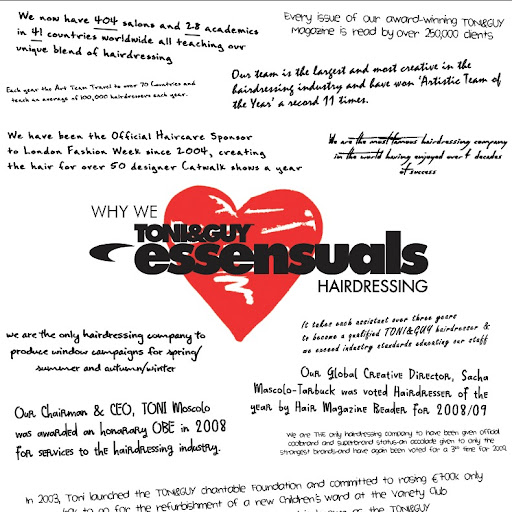 We now have 404 salons and 28 academics
in 41 countries worldwide all teaching our
unique blend of hairdressing
Every issue of our award-winning TONI&GUY
Magazine is read by over 250,000 clients
Each year the Art Team Travel to over 70 Countries and
teach an average of 100,000 hairdressers each year.
Our team is the largest and most creative in the
hairdressing industry and have won 'Artistic Team of
the Year' a record 11 times.
We have been the Official Haircare Sponsor
to London Fashion Week since 2004, creating
the hair for over 50 designer Catwalk shows a year
We are the most famous hairdressing company
in the world having enjoyed over 4 decades
of success
WHY WE
TONI&GUY
essensuals
HAIRDRESSING
we are the only hairdressing company to
produce window campaigns for spring/
summer and autumn/winter
It takes each assistant over three years
to become a qualified TONI&GUY hairdresser &
we exceed industry standards educating our staff
Our Global Creative Director, Sacha
Mascolo-Tarbuck was voted Hairdresser of the
year by Hair Magazine Reader for 2008/09
Our Chairman & CEO, TONI Moscolo
was awarded an honorary OBE in 2008
for services to the hairdressing industry.
we are THE only hairdressing company to have been given official
coolbrand and superbrand status-an accolade given to only the
strongest brands-and have again been voted for a 3rd time for 2009.
In 2003, Toni launched the TONI&GUY charitable Foundation and committed to raising €700k only
to go for the refurbishment of a new Children's ward at the Variety Club
as the TONI&GUY